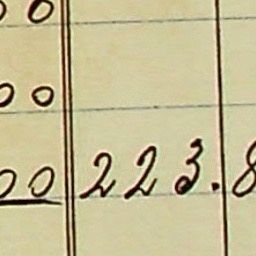 00
00
00 223.8